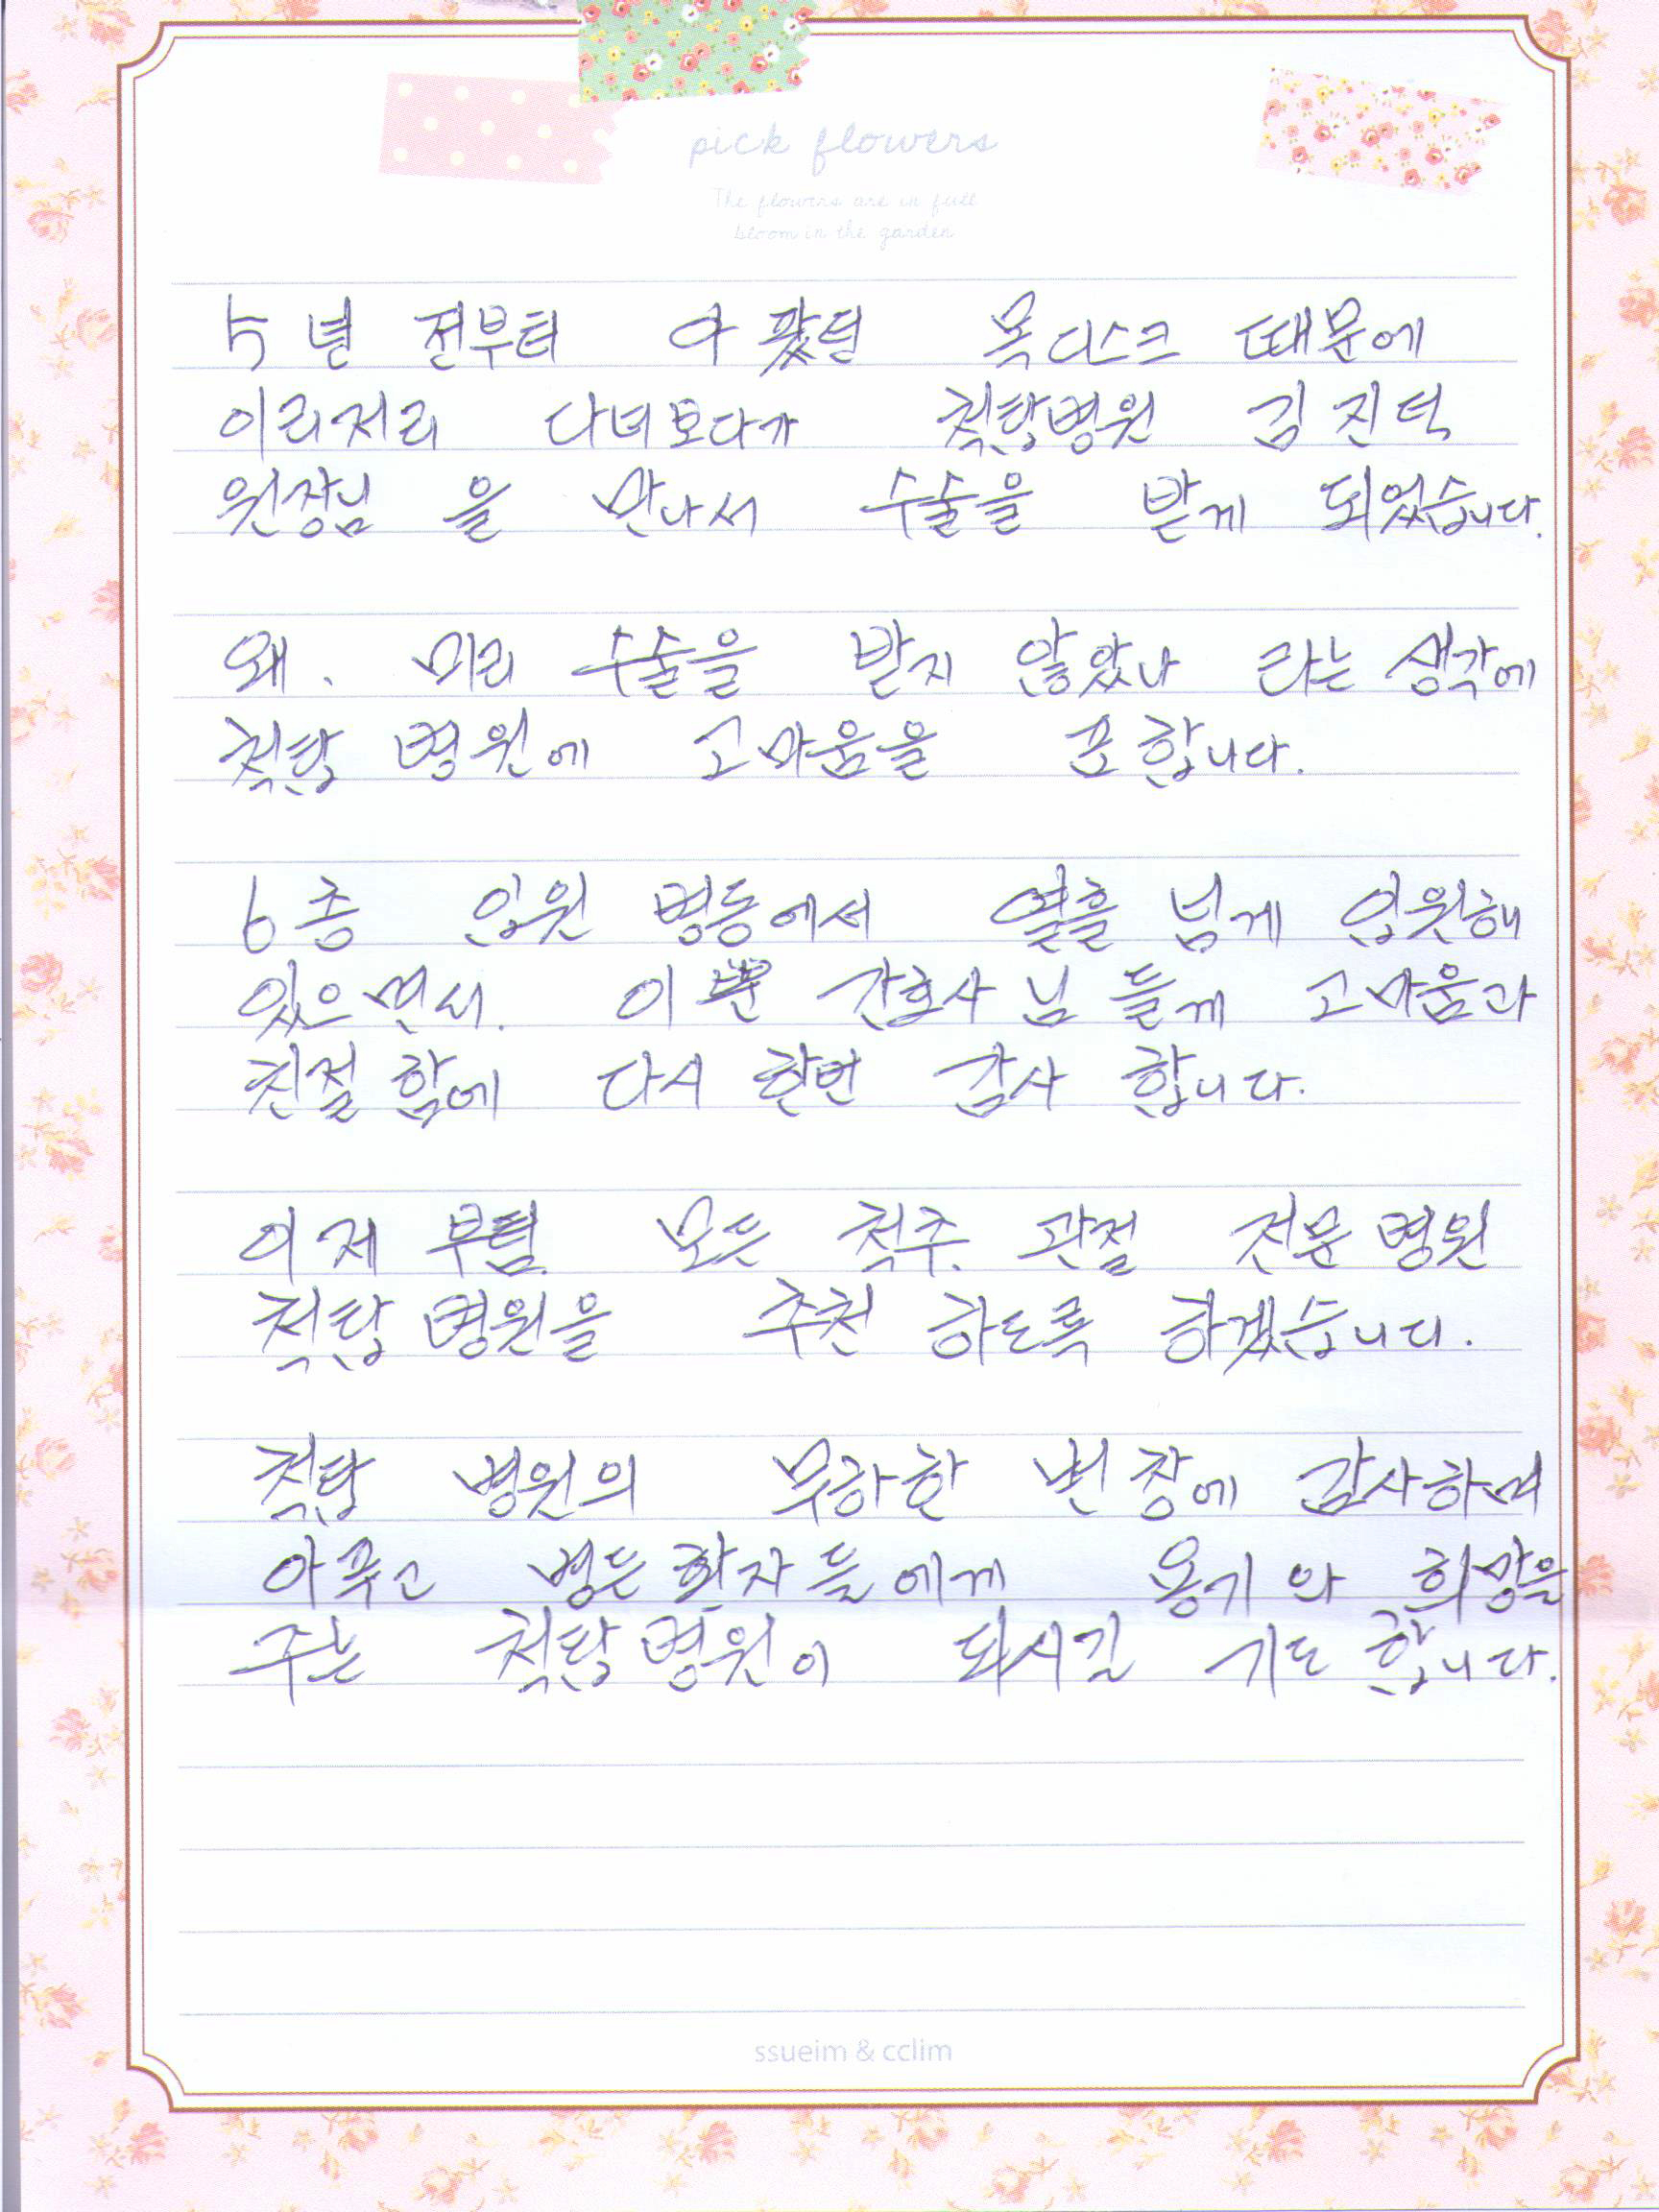 pick flowers
The flowers are in full
bloom in the garden
5년 전부터 아팠던 목디스크 때문에
이리저리 다녀보다가 척탑병원 김진덕
원장님 을 만나서 수술을 받게 되었습니다.
왜. 미리 수술을 받지 않았나 라는 생각에
척탑 병원에 고마움을 표합니다.
6층 입원 병동에서 열흘 넘게 입원해
있으면서. 이쁜 간호사 님 들게 고마움과
친절 함에 다시 한번 감사 합니다.
이제 부텀. 모든 척추. 관절 전문 병원
척탑 병원을 추천 하도록 하겠습니다.
척탑 병원의 무하한 번창에 감사하며
아푸고 병든 환자 들에게 용기 와 희망을
주는 척탑병원이 되시길 기도 합니다.
ssueim & cclim